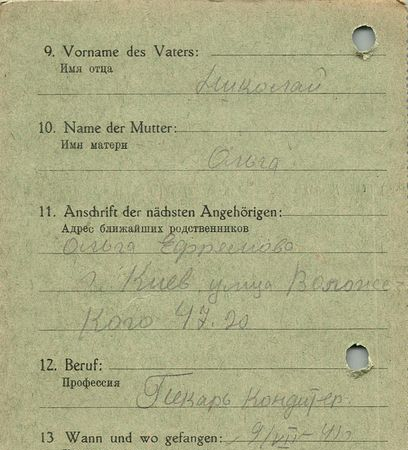 9. Vorname des Vaters:
Имя отца
Николай
10. Name der Mutter:
Имя матери
Ольга
11. Anschrift der nächsten Angehörigen:
Адрес ближайших родственников
Ольга Ефремова
г. Киев, улица
кого 47.20
12. Beruf:
Профессия
Пекарь Кондитер
13 Wann und wo gefangen: